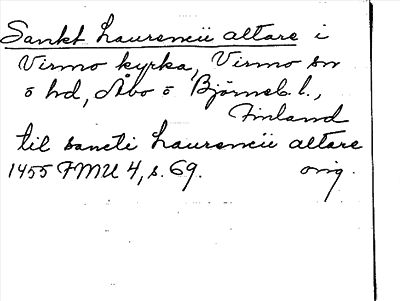 Sankt Laurencii altare i
Virmo kyrka, Virmo sn
o hd, Åbo o Björneb. l.,
Finland
til sancti Laurencii altare
1455 FMU 4, s. 69. orig.